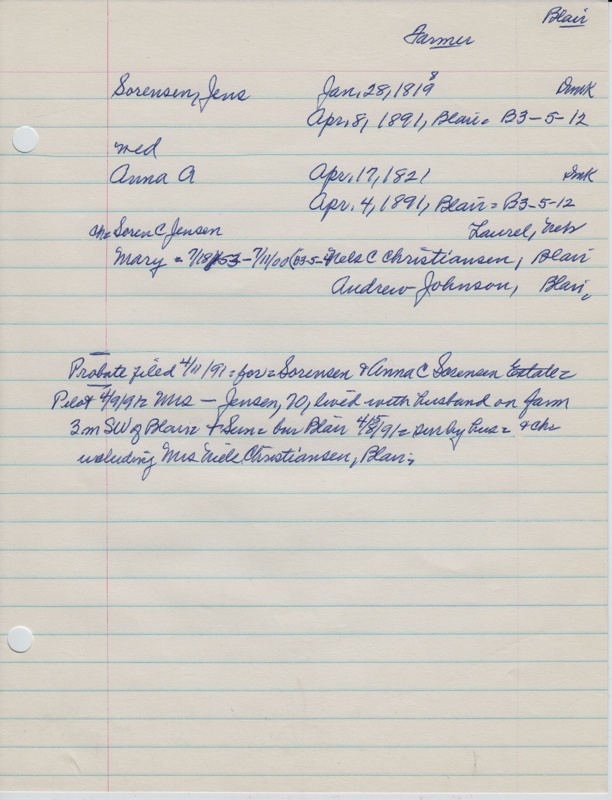 Blair
Farmer
Sorensen, Jens Jan. 28, 1819 8 Dmk
Apr. 8, 1891, Blair = B3-5-12
med
Anna A Apr. 17, 1821 Dmk
Apr. 4, 1891, Blair = B3-5-12
ch = Soren C Jensen Laurel, Neb
Mary = 7/18/53 - 7/11/00 (B3-5-4) Nels C Christiansen, Blair
Andrew Johnson, Blair,
Probate filed 4/11/91 = for = Sorensen & Anna C Sorensen Estate =
Pilot 4/9/91 = Mrs — Jensen, 70, lived with husband on farm
3 m SW of Blair = + Sun = bur Blair 4/5/91 = sur by hus = & chr
including Mrs Niels Christiansen, Blair,